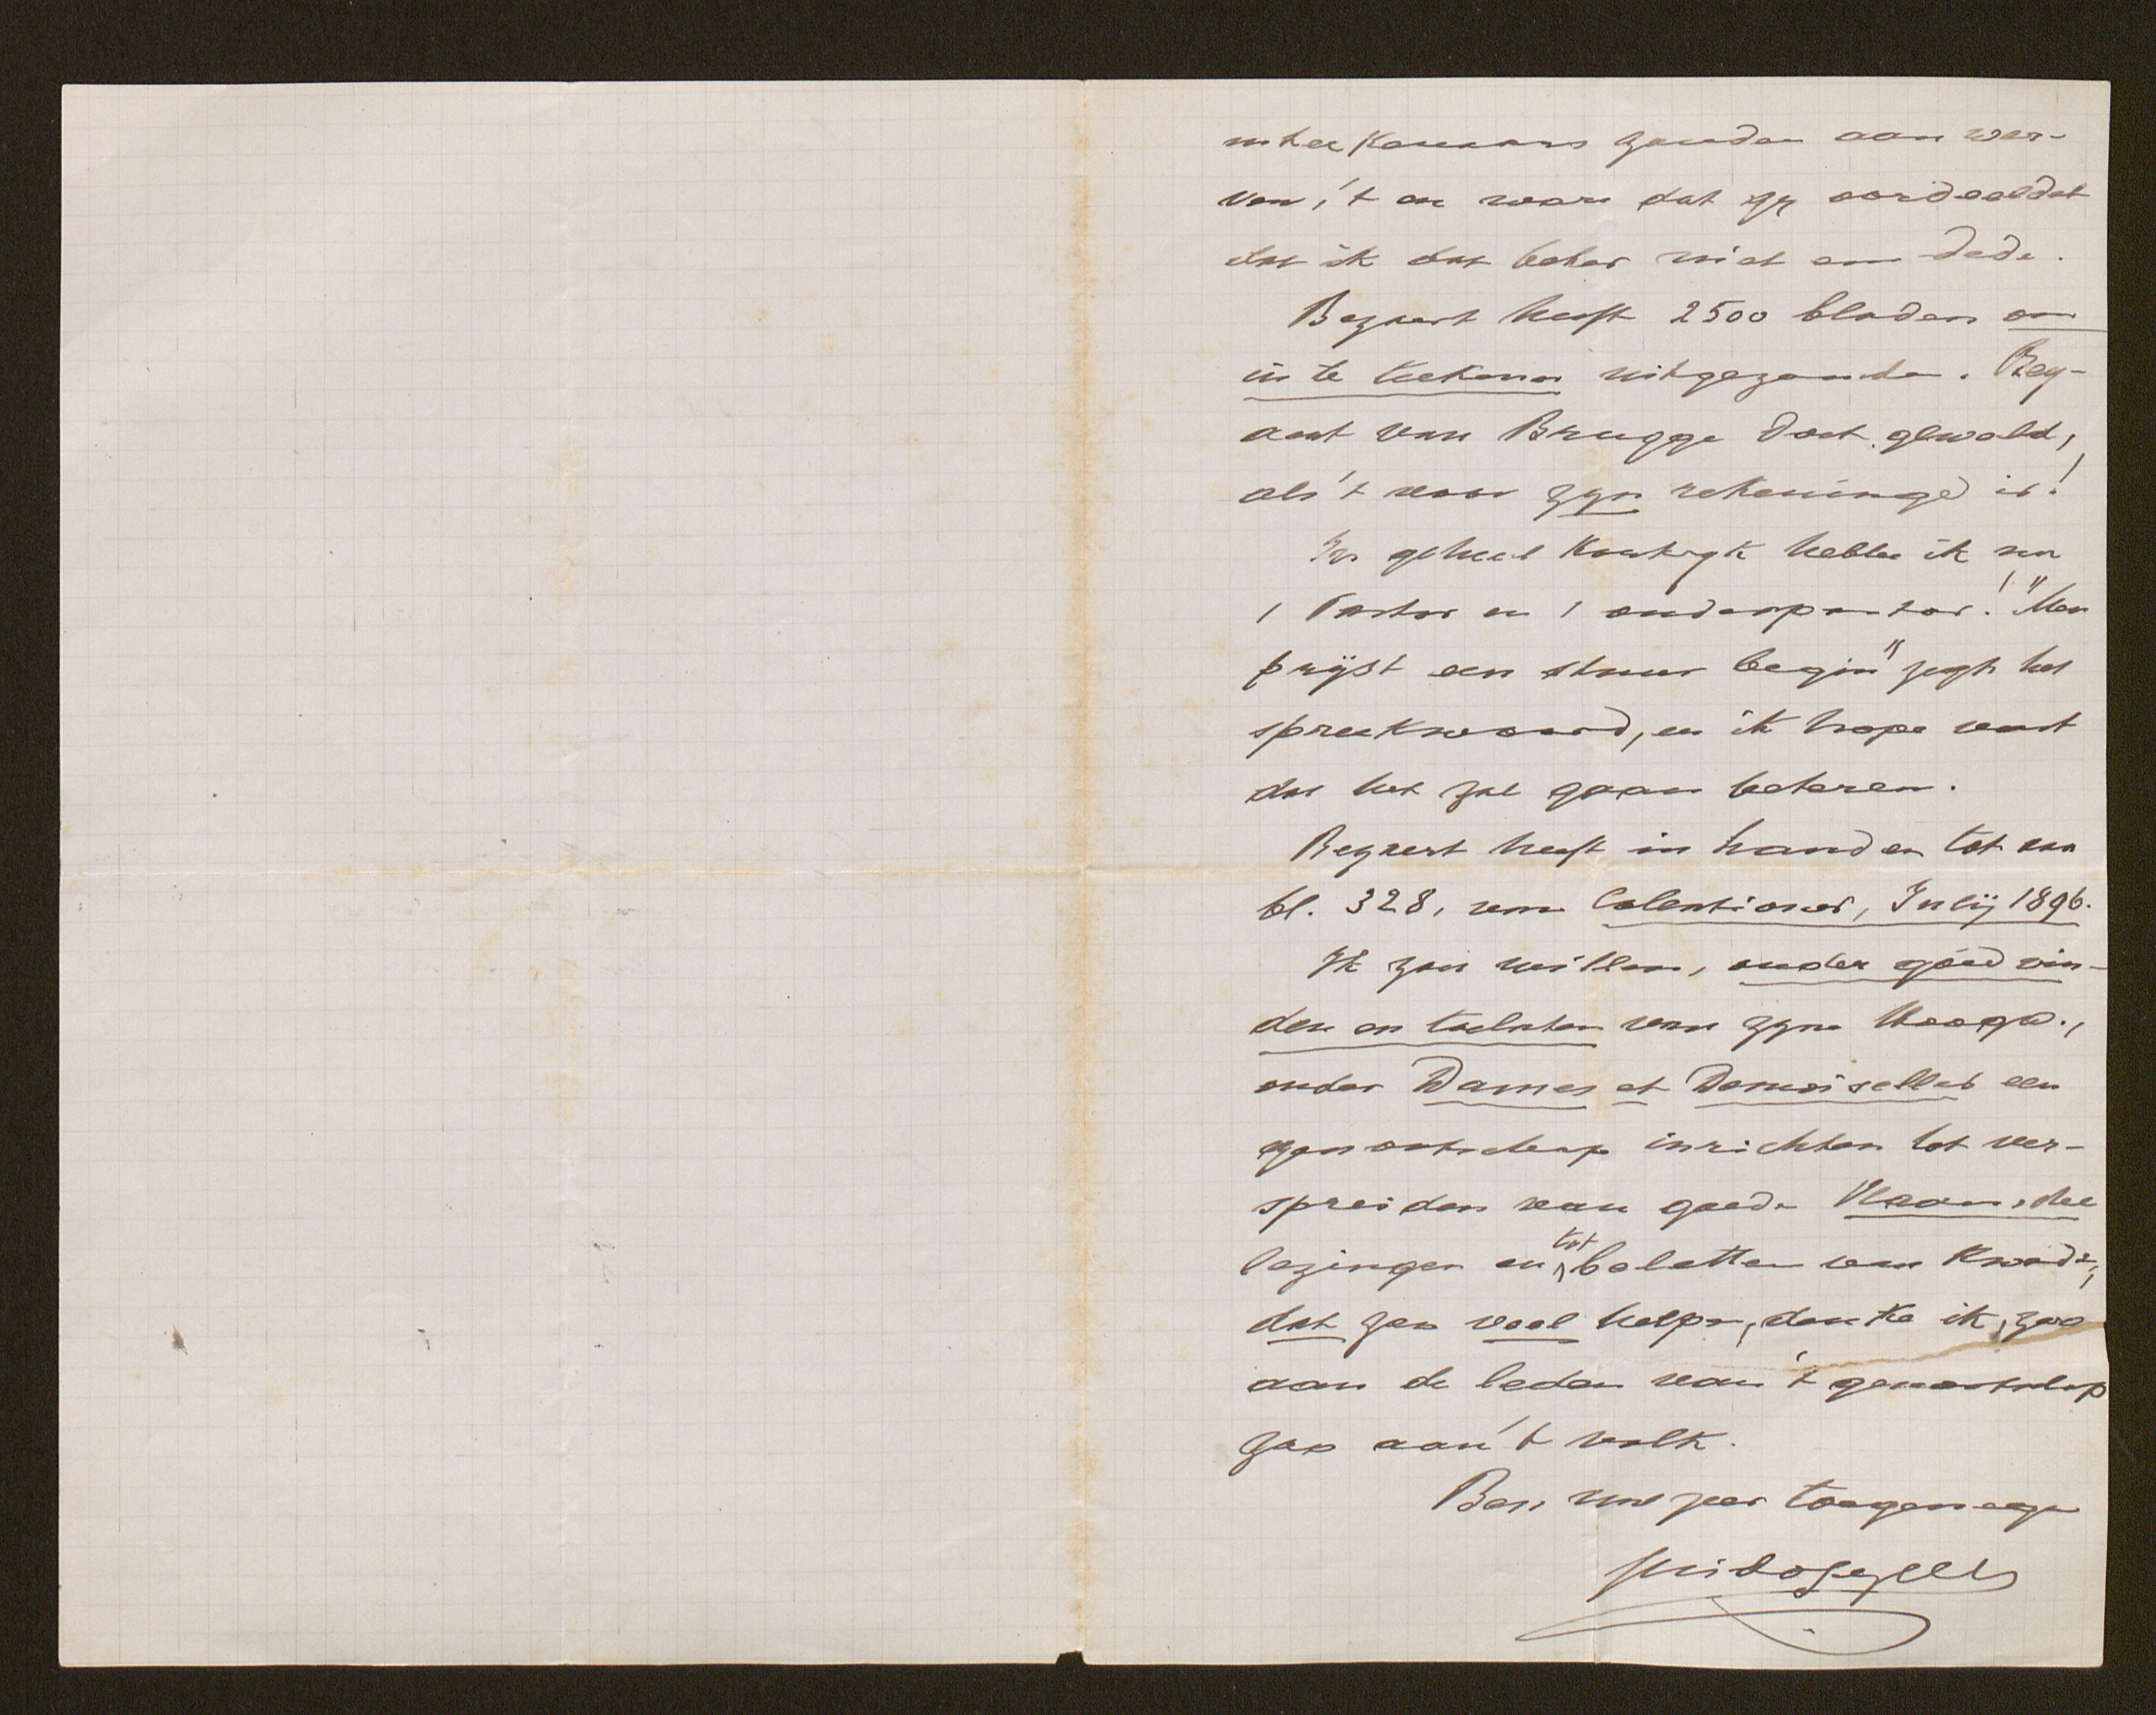 zouden aan wer-
ven, 't en ware dat gy oordeeldet
dat ik dat beter niet en dede.
Beyaert heeft 2500 bladen om
in te teekenen uitgezonden. Bey-
aert van Brugge doet geweld,
als 't voor zyn rekeninge is!
In geheel Kortryk hebbe ik nu
1 Pastor en 1 onderpastor! "Men
prijst een stuur begin" zegt het
spreekwoord, en ik hope vast
dat het zal gaan beteren.
Beyaert heeft in handen tot aan
bl. 328, van Calentioner, Julij 1896.
Ik zou willen, onder goedvin-
den en toelaten van zyne Hoogw.,
onder Dames et Demoiselles een
genootschap inrichten tot ver-
spreiden van goede Vlaamsche
lezingen en tot beletten van kwade,
dat zou veel helpen, denke ik, zoo
aan de leden van 't genootschap
zoo aan 't volk.
Ben uw zeer toegenegen
Guido Gezelle